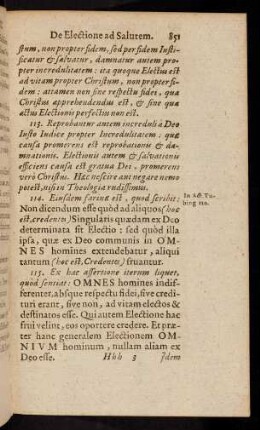 De Electione ad Salutem. 851
stum, non propter fidem, sed per fidem Iusti-
ficatur & salvatur, damnatur autem pro-
pter incredulitatem: ita quoque Electus est
ad vitam propter Christum, non propter fi-
dem: attamen non sine respectu fidei, qua
Christus apprehendendus est, & sine qua
actus Electionis perfectus non est.
113. Reprobantur autem increduli à Deo
Iusto Iudice propter Incredulitatem: quæ
causa promerens est reprobationis & da-
mnationis. Electionis autem & salvationis
efficiens causa est gratia Dei, promerens
verò Christus. Hæc nescire aut negare nemo
potest, nisi in Theologia rudissimus.
114. Eiusdem farinæ est, quod scribit:
Non dicendum esse quòd ad aliquos (hoc
est, credentes) Singularis quædam ex Deo
determinata sit Electio: sed quòd illa
ipsa, quæ ex Deo communis in OM-
NES homines extendebatur, aliqui
tantum (hæc est, Credentes) fruantur.
115. Ex hac assertione iterum liquet,
quòd sentiat: OMNES homines indif-
ferenter, absque respectu fidei, sive credi-
turi erant, sive non, ad vitam electos &
destinatos esse. Qui autem Electione hac
frui velint, eos oportere credere. Et præ-
ter hanc generalem Electionem OM-
NIVM hominum, nullam aliam ex
Deo esse. Hhh 3 Idem
In Act. Tu-
bing.